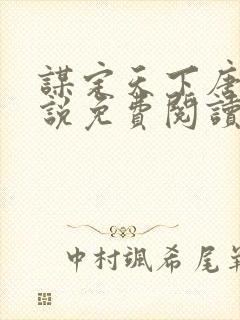 謀定天下唐
說免費閱讀
中村颯希尾